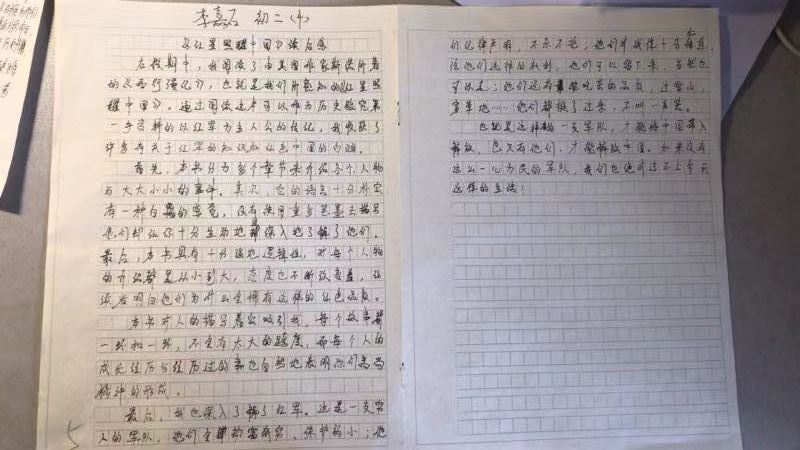 李嘉石 初二(4)
《红星照耀中国》读后感
在假期中，我阅读了由美国作家斯诺所著
的《西行漫记》，也就是我们所熟知的《红星照
耀中国》。通过阅读这本可以作为历史研究第
一手资料的以红军为主人公的传记，我收获了
许多有关于红军的知识和红色中国的内涵。
首先，本书分为多个章节来介绍各个人物
与大大小小的事件。其次，它的语言十分朴实
有一种自的感觉，没有使用重多笔墨去描写
他们却让你十分生动地深入地了解了他们。
最后，本书具有十分强地逻辑性，对每个人物
的介绍都是从小到大，态度也不断改变着，让
读者明白他们为什么会拥有这样的红色品质。
本书对人的描写着实吸引我，每个故事
一环扣一环，不会有太大的跳度，而每个人的
成长经历与经历过的事也自然地表明他们高尚
精神的形成。
最后，我也深入了解了红军。这是一支穷
人的军队，他们会帮助穷，保护弱小；他
们纪律严明，不杀不抢；他们
给他们选择的权利，他们可以留下来，当然也
可以走；他们还有吃苦的品质，过雪山，
穿草地……他们都挺了过来，不叫一声苦。
也就是这样的一支军队，才能将中国带入
解放，也只有他们，才能解放中国。如果没有
这么一心为民的军队，我们也绝对过不上今天
这样的生活！